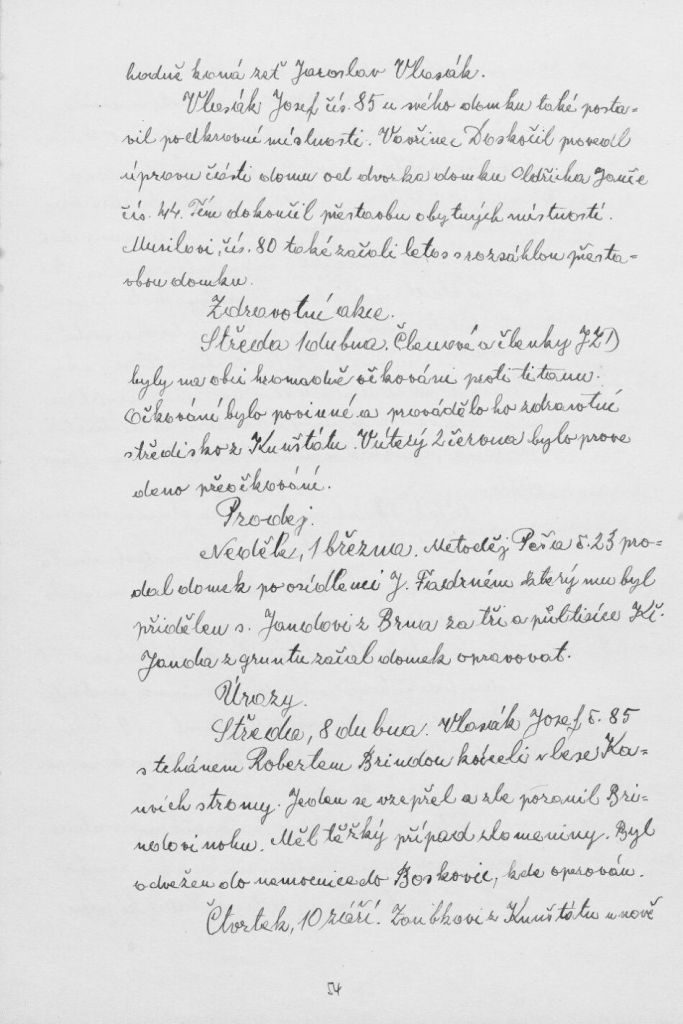 hodně koná zeť Jaroslav Vlasák.
Vlasák Josef čís. 85 u svého domku také posta-
vil podkrovní místnosti. Vavřinec Doskočil provedl
úpravu části domu od dvorka domku Oldřicha Janče
čís. 44. Tím dokončil přestavbu obytných místností.
Musilovi, čís. 80 také začali letos s rozsáhlou přesta-
vbou domku.
Zdravotní akce.
Středa 1 dubna. Členové a členky JZD
byly na obci hromadně očkováni proti titanu.
Očkování bylo povinné a provádělo ho zdravotní
středisko z Kunštátu. V úterý 2 června bylo prove
deno přeočkování.
Prodej.
Neděle, 1 března. Metoděj Peša č. 23 pro-
dal domek po osídlenci J. Fiadrném který mu byl
přidělen s. Jandovi z Brna za tři a půl tisíce Kč.
Janda z gruntu začal domek opravovat.
Úrazy.
Středa, 8 dubna. Vlasák Josef č. 85
s tchánem Robertem Brindou káceli v lese Ka-
nvích stromy. Jeden se vzepřel a zle poranil Bri-
ndovi nohu. Měl těžký případ zlomeniny. Byl
odvežen do nemocnice do Boskovic, kde operován.
Čtvrtek, 10 září. Zoubkovi z Kunštátu u nově
54